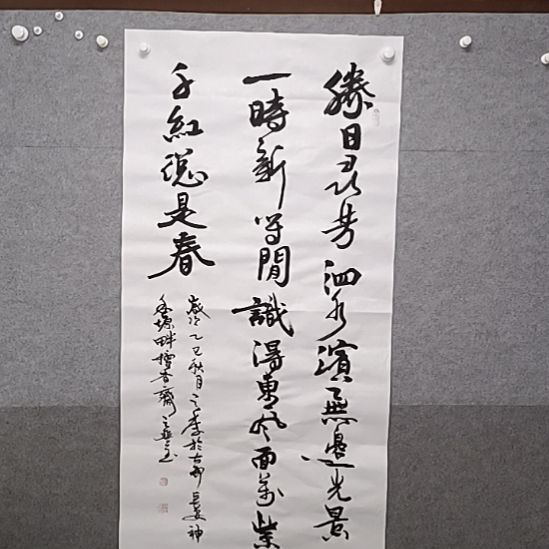 勝日尋芳泗水濱無邊光景
一時新等閒識得東風面萬紫
千紅總是春
歲次乙巳秋月之季於古都長安神
禾塬畔檀香齋